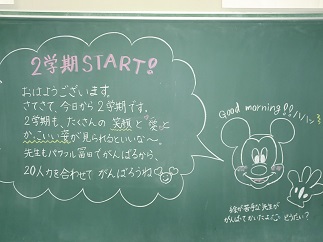 2学期START!
おはようございます。
さてさて、今日から2学期です。
2学期も、たくさんの笑顔と
かっこいい姿が見られるといいな〜。
先生もパワフル富田でがんばるから、
20人力を合わせてがんばろうね
Good morning!!
絵が苦手な先生が
がんばってかいたよ。どうだい?